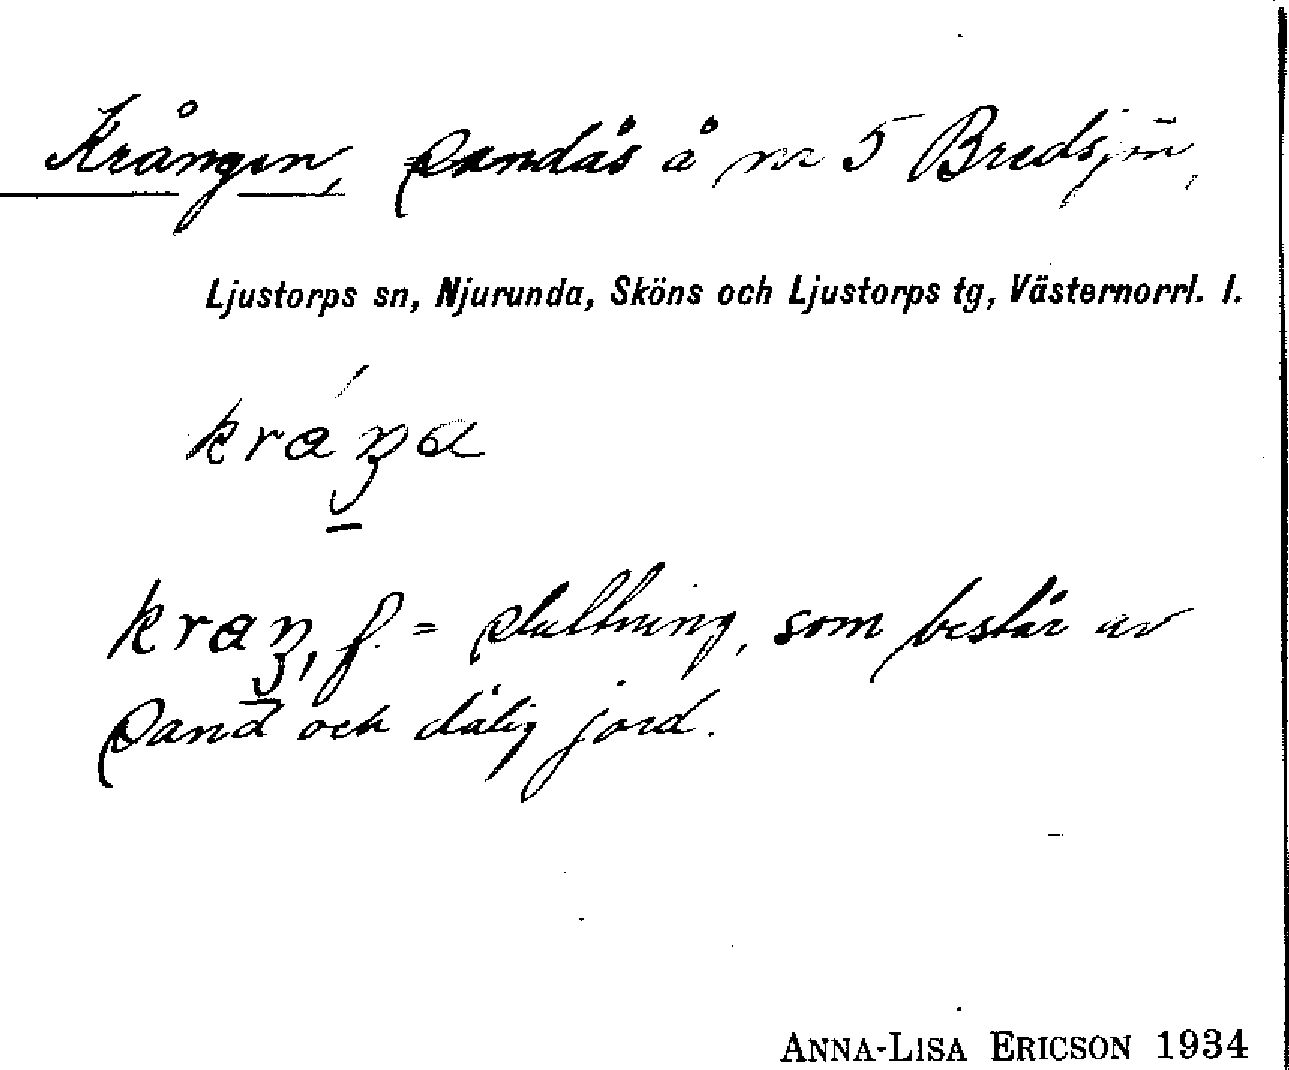 Krången, Sandås å nr 5 Bredsjön,
Ljustorps sn, Njurunda, Sköns och Ljustorps tg, Västernorrl. l.
f. = sluttning, som består av
Sand och dålig jord.
ANNA-LISA ERICSON 1934